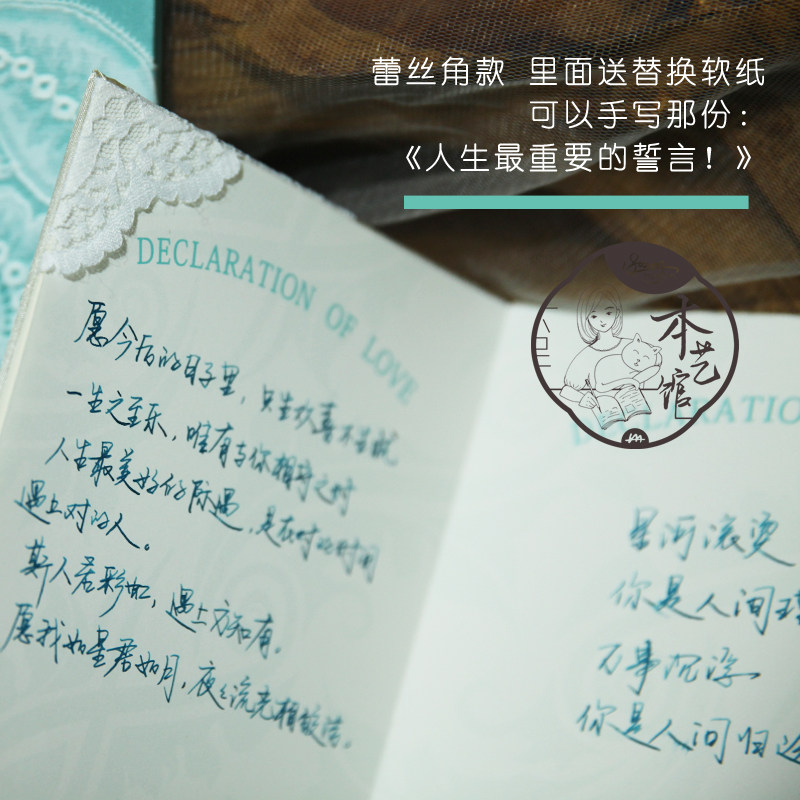 蕾丝角款 里面送替换软纸
可以手写那份：
《人生最重要的誓言！》
本艺馆
DECLARATION OF LOVE
愿今后的日子里，只生欢喜不生忧
一生之至乐，唯有与你相守之时
人生最美好的际遇，是在对的时间
遇上对的人。
斯人若彩虹，遇上方知有。
愿我如星君如月，夜夜流光相皎洁。
星河滚烫
你是人间
万事沉浮
你是人间归途